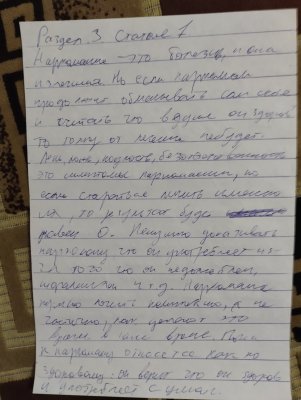 Раздел 3 Статья 1
Наркомания - это болезнь, и она
излечима. Но если наркоман
продолжает обманывать сам себя
и считать что видим он здоров
то толку от лечения не будет.
Лень, ложь, подлость,
это симптомы наркомании, но
если стараться лечить именно
их, то результат будет
равен 0. Нельзя доказывать
наркоману что он употребляет из-
за того что он недолюблен,
и т.д. Наркоманию
нужно лечить комплексно, а не
частично, как делают это
врачи в наше время. Пока
к наркоману относятся как ко
здоровому - он верит что он здоров
и употребляет с умом.